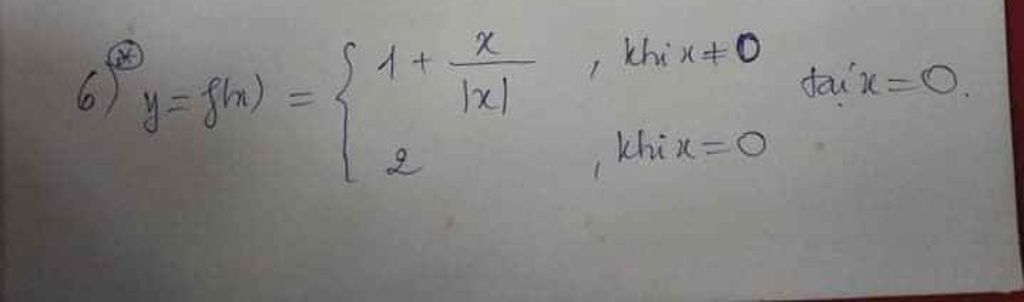 6)* y = f(x) = { 1 + x/|x| , khi x ≠ 0
2 , khi x = 0
tại x = 0.